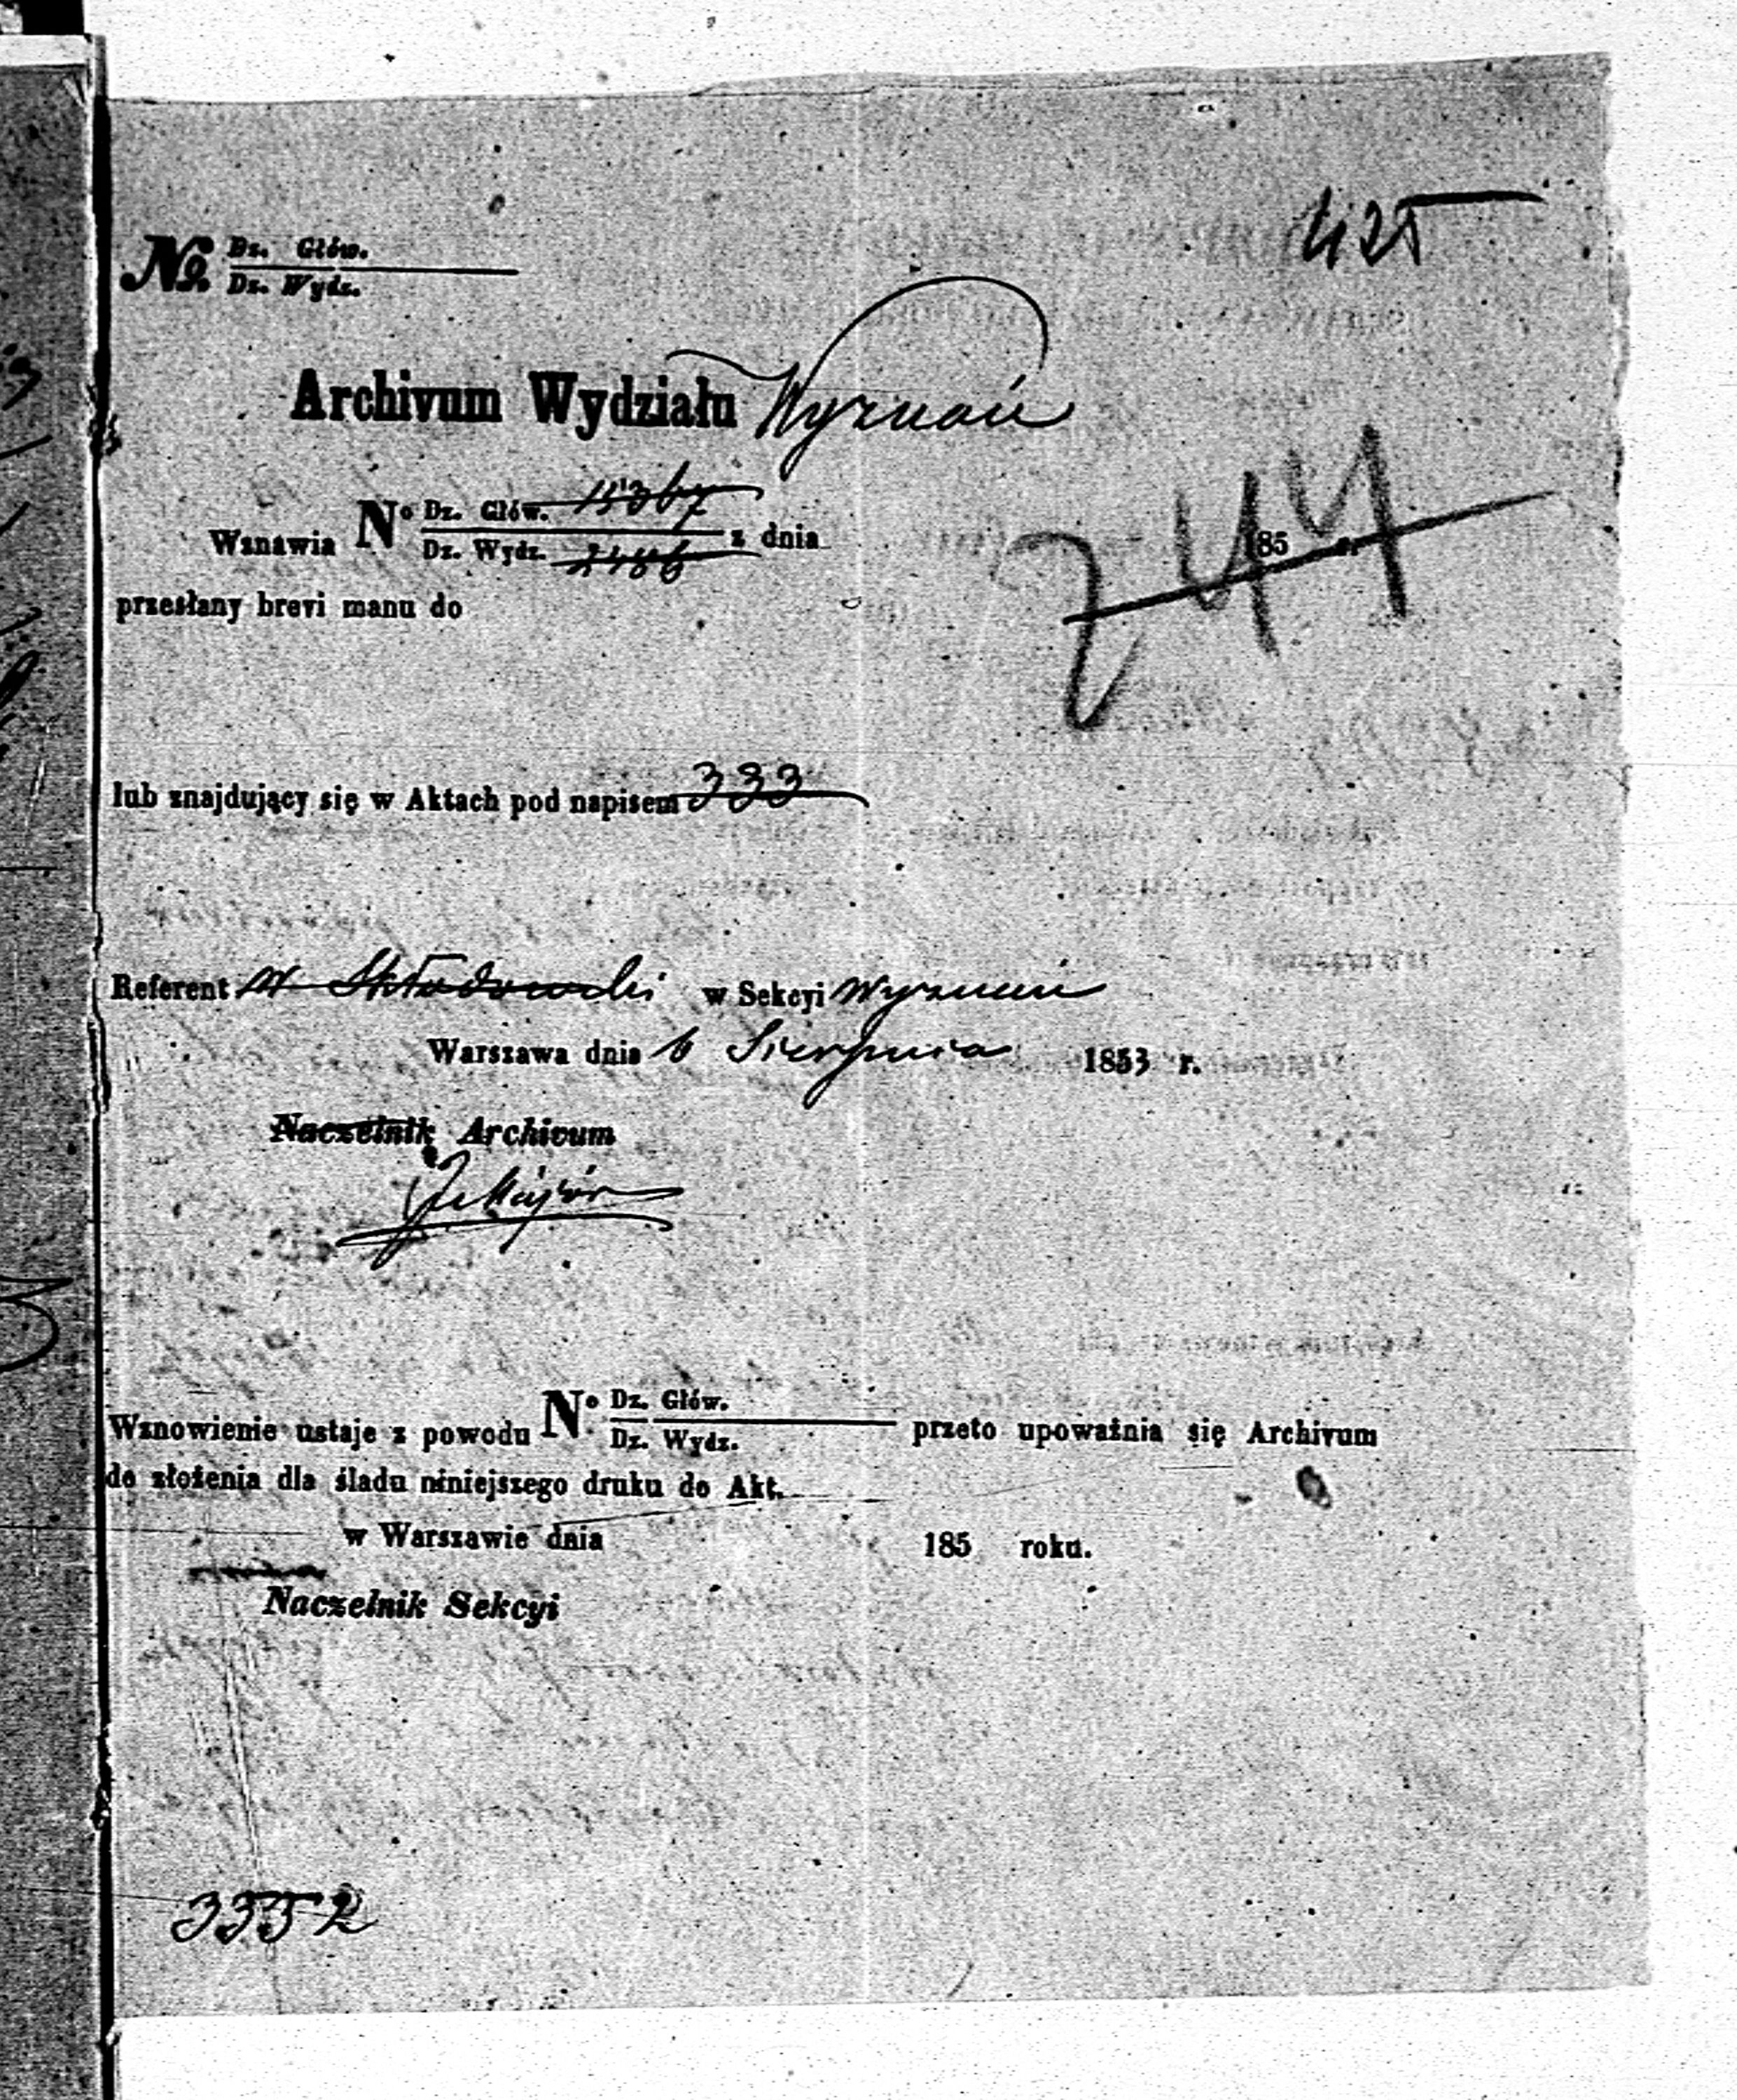 425
№ Dz. Głów.
Dz. Wydz.
Archivum Wydziału Wyznań
Wznawia No Dz. Głów. 15367
Dz. Wydz. z dnia 185 r.
244
przesłany brevi manu do
lub znajdujący się w Aktach pod napisem 333
Referent Skłodowski w Sekcyi Wyznań
Warszawa dnia 6 Sierpnia 1853 r.
Naczelnik Archivum
Wznowienie ustaje z powodu No Dz. Głów.
Dz. Wydz. przeto upoważnia się Archivum
do złożenia dla śladu niniejszego druku do Akt.
w Warszawie dnia 185 roku.
Naczelnik Sekcyi
3352